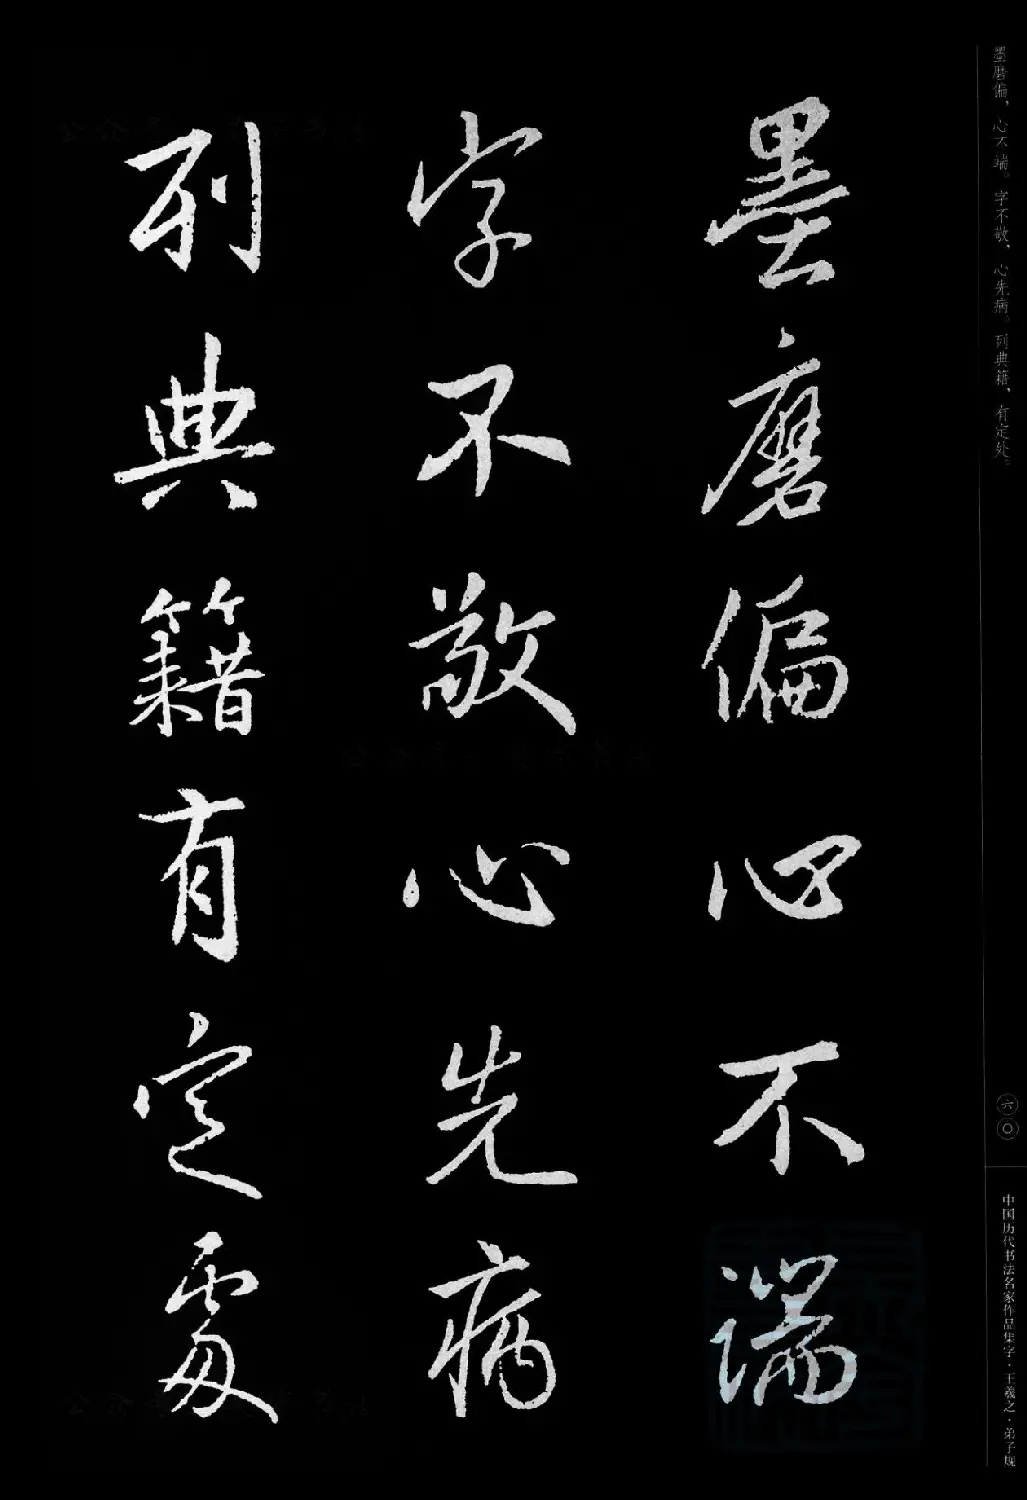 墨磨偏，心不端。字不敬，心先病。列典籍，有定处。
墨磨偏心不端
字不敬心先病
列典籍有定處
六〇
中国历代书法名家作品集字·王羲之·弟子规